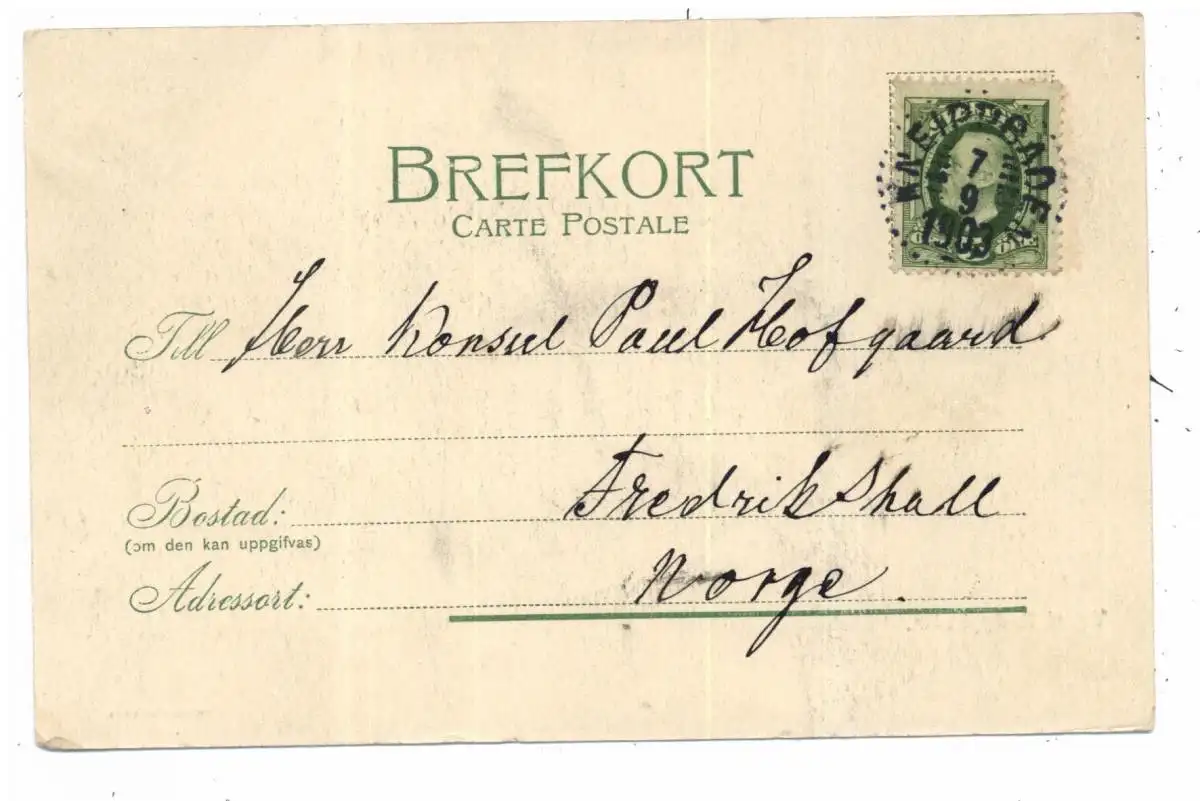 BREFKORT
CARTE POSTALE
KNEIPPBADEN
7
9
1903
Till Herr Konsul Paul Hofgaard
Bostad: Fredrikshall
(om den kan uppgifvas)
Adressort: Norge.